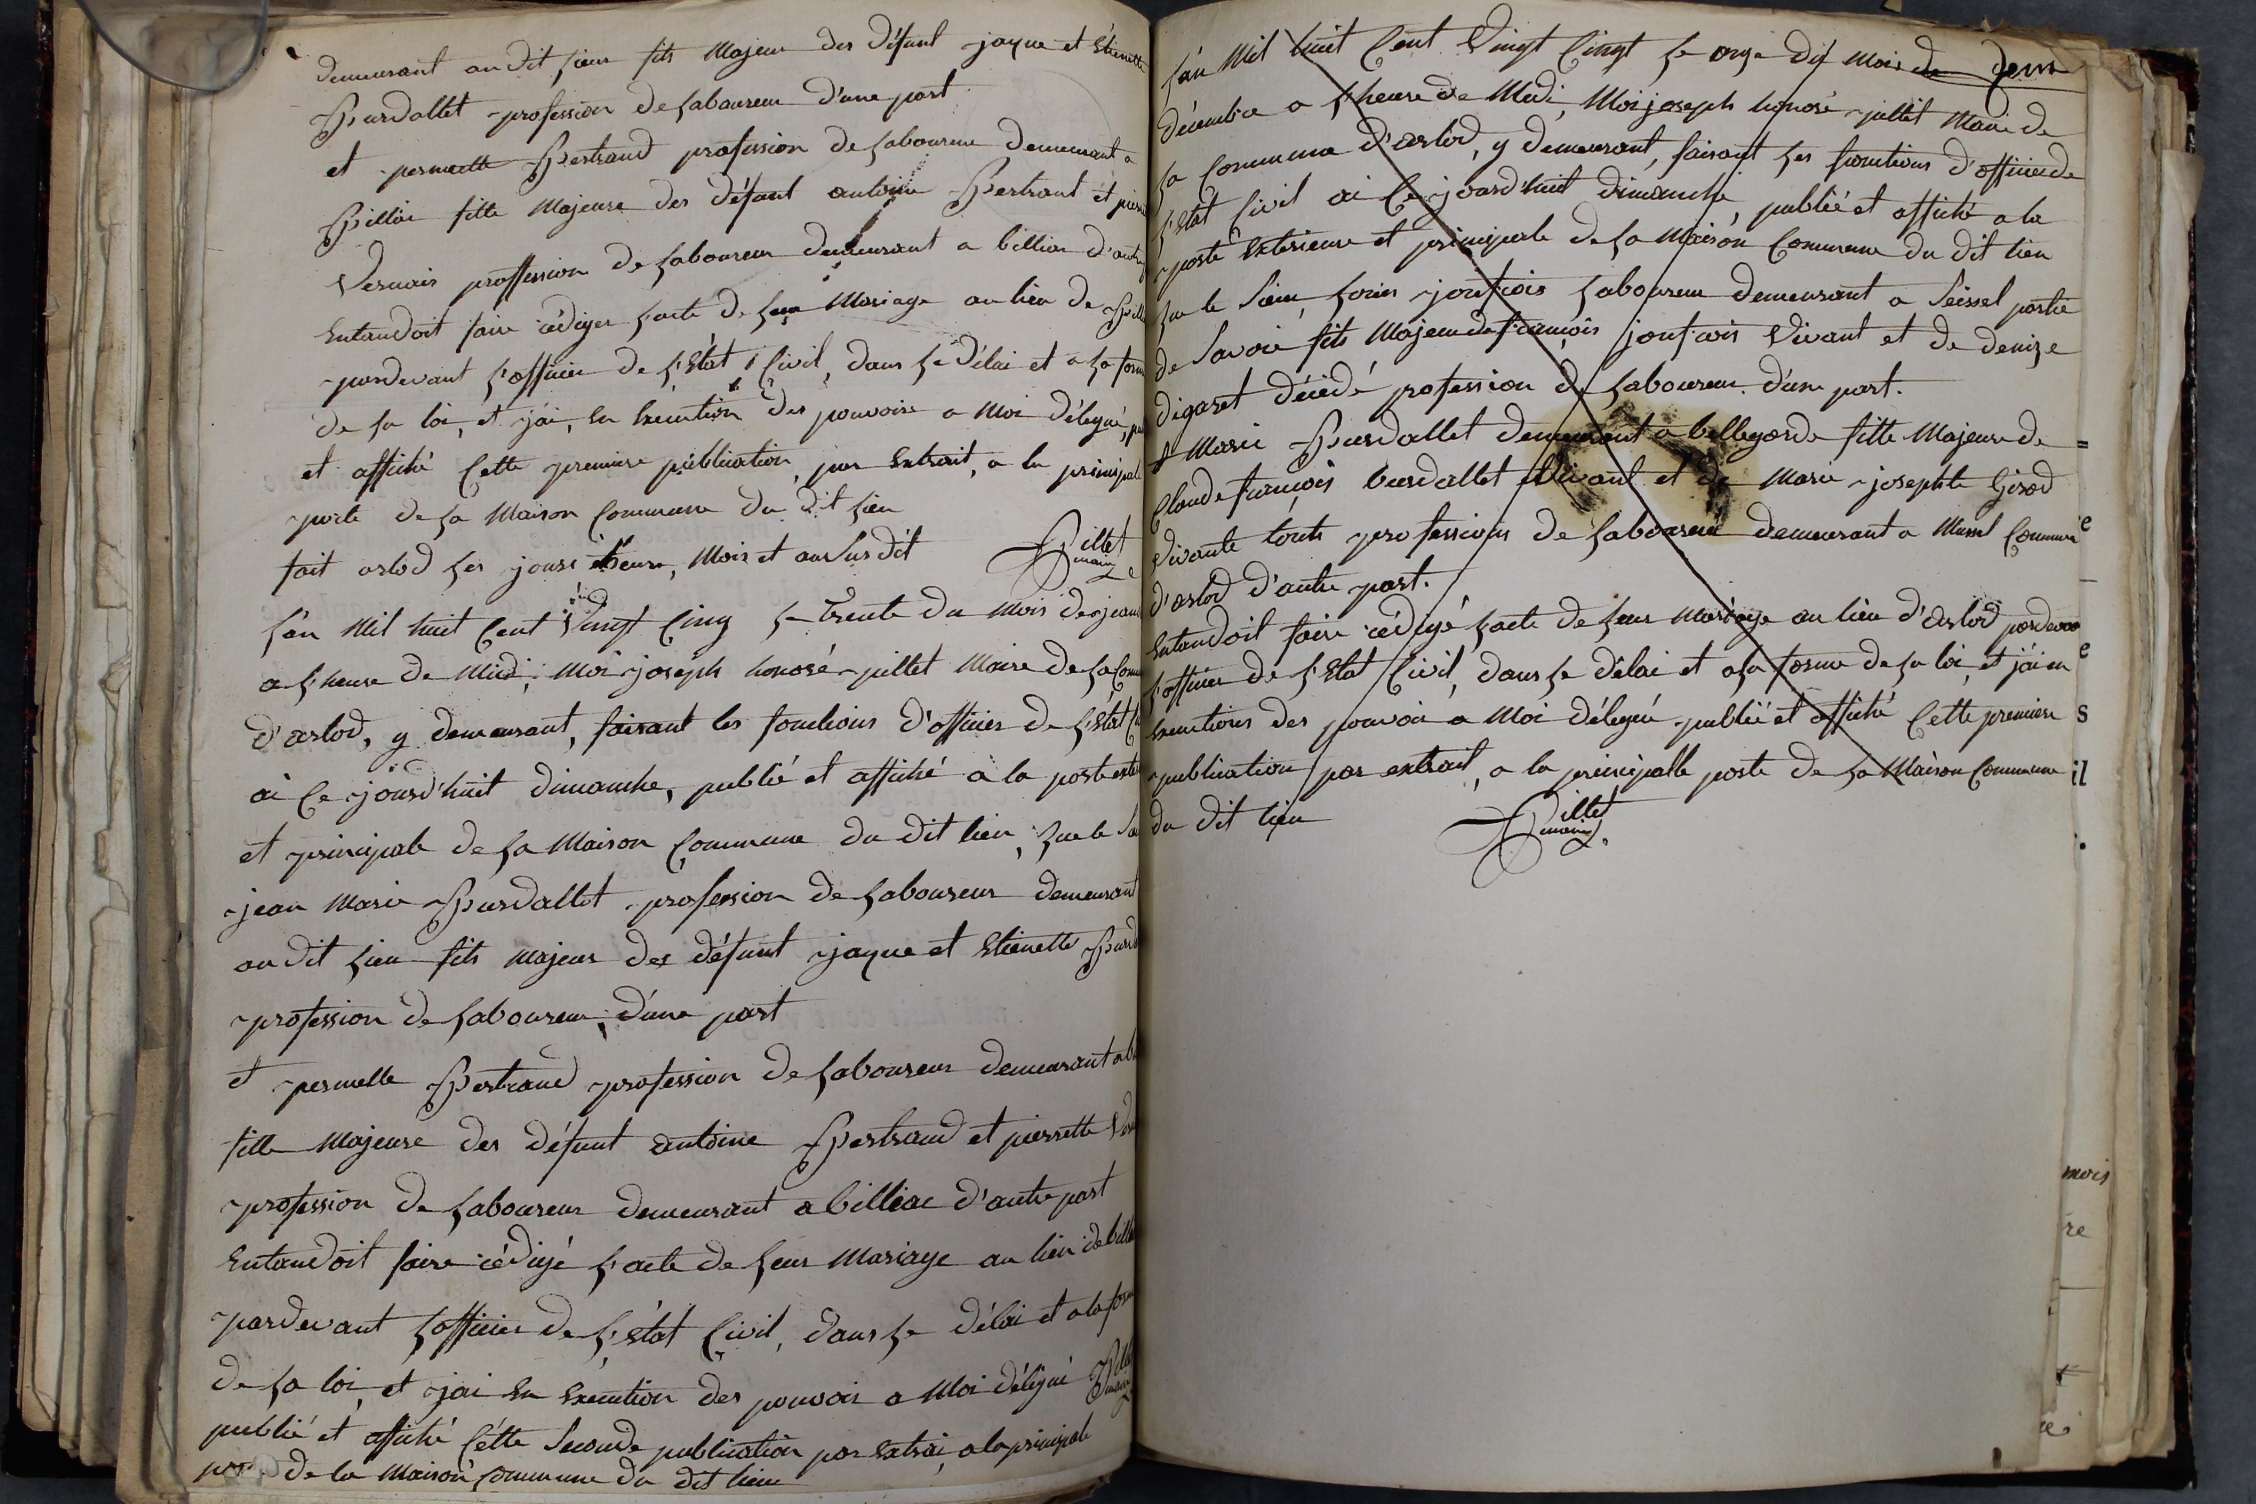 demeurant au dit lieu fils Majeur des défunt jaque et Etienette
Burdallet profession de laboureur d'une part
et pernette Bertrand profession de laboureur demeurant a
Billia fille Majeure des défunt antoine Bertrant et
Vernais proffession de laboureur demeurant a billiac d'autre
Entandoit faire rédiger l'acte de leur Mariage au lieu de
pardevant l'officier de l'Etat Civil, dans le délai et a la forme
de la loi, et j'ai, en Execution des pouvoirs a Moi délégué,
et affiché Cette premiere publication, par Extrait, a la principale
porte de la Maison Commune du dit lieu
fait arlod les jours, heure, Mois et an susdit
Pillet
maire
L'an Mil huit Cent Vingt Cinq le trente du Mois de
a l'heure de Midi, Moi joseph honoré pillet Maire de la
d'arlod, y demeurant, faisant les fonctions d'officier de l'Etat
ai Ce jourd'huit dimanche, publié et affiché a la porte
et principale de la Maison Commune du dit lieu, que le
jean Marie Burdallet profession de laboureur demeurant
au dit lieu fils Majeur des défunt jaque et Etienette
profession de laboureur, d'une part
et pernette Bertrand profession de laboureur demeurant a
fille Majeure des défunt antoine Bertrand et pierrette
profession de laboureur demeurant a billiac d'autre part
Entandoit faire rédigé l'acte de leur Mariage au lieu de
pardevant l'officier de l'Etat Civil, dans le délai et a la forme
de la loi, et j'ai En Execution des pouvoir a Moi délégué
publié et affiché Cétte Seconde publication par Extrai, a la principale
de la Maison Commune du dit lieu
L'an Mil huit Cent Vingt Cinqt le onze dit Mois de
décembre a l'heure de Midi, Moi joseph honoré pillet Maire de
la Commune d'arlod, y demeurant, faisant les fonctions d'officier de
l'Etat Civil ai Ce jourd'huit dimanche, publié et affiché a la
porte Exterieure et principale de la Maison Commune du dit lieu
que le Sieur Jouffrois laboureur demeurant a Seissel partie
de Savoie fils Majeur de françois jouffrois Vivant et de denize
digaret décédé profession de laboureur d'une part.
et Marie Burdallet demeurant a bellegarde fille Majeure de
Claude françois burdallet Vivant et de Marie josephte Girod
Vivante touts professions de laboureur demeurant a Mussel Commune
d'arlod d'autre part.
Entandoit faire rédigé l'acte de leur Mariage au lieu d'arlod pardevan
l'officier de l'Etat Civil, dans le délai et a la forme de la loi, et j'ai en
Exections des pouvoir a Moi délégué publié et affiché Cette premiere
publication par extrait, a la principalle porte de la Maison Commune
du dit lieu
Pillet
maire
mois
re